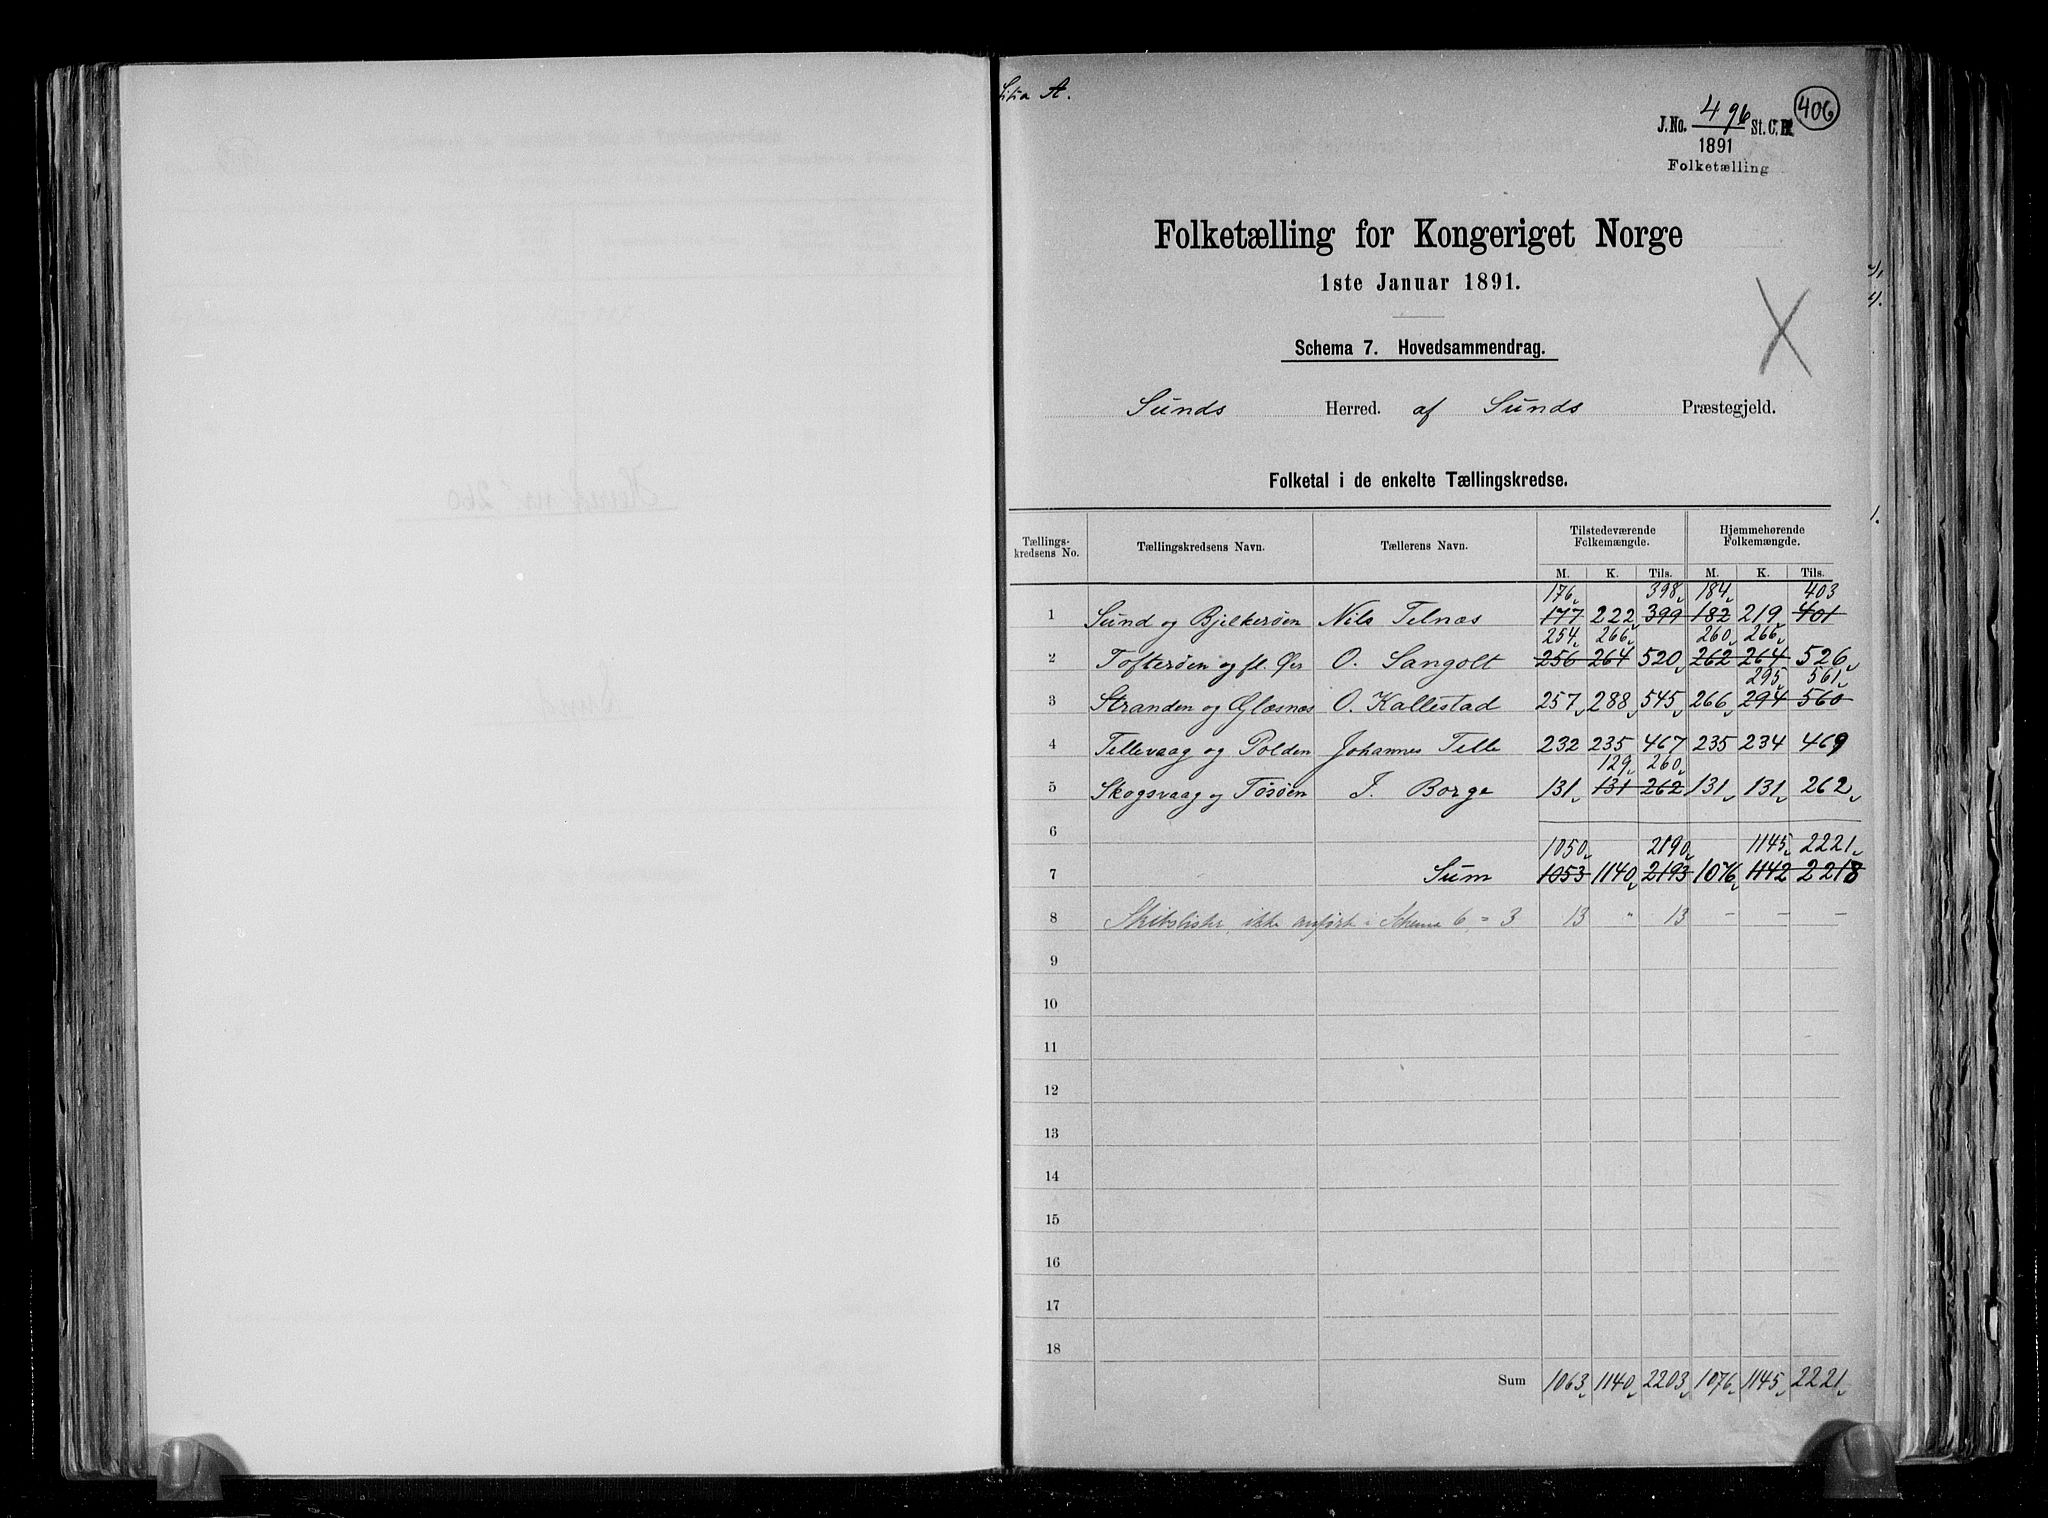 A.
406
J.No. 496 St. C. B.
1891
Folketælling
Folketælling for Kongeriget Norge
1ste Januar 1891.
Schema 7. Hovedsammendrag.
Sunds Herred. af Sunds Præstegjeld.
Folketal i de enkelte Tællingskredse.
Tællings-kredsens No. Tællingskredsens Navn. Tællerens Navn. Tilstedeværende Folkemængde. Hjemmehørende Folkemængde.
M. K. Tils. M. K. Tils.
176 398 184 403
1 Sund og Bjelkerøen Nils Telnæs 177 222 399 182 219 401
254 266 260 266
2 Tofterøen og fl. Øer O. Sangolt 256 264 520 262 264 526
295 561
3 Stranden og Glæsnæs O. Kallestad 257 288 545 266 294 560
4 Tellevaag og Polden Johannes Telle 232 235 467 235 234 469
129 260
5 Skogsvaag og Tøsøen I. Borge 131 131 262 131 131 262
6
1050 2190 1145 2221
7 Sum 1053 1140 2193 1076 1142 2218
8 Skibslister, ikke anført i Schema 6, = 3 13 " 13 – – –
9
10
11
12
13
14
15
16
17
18
Sum 1063 1140 2203 1076 1145 2221